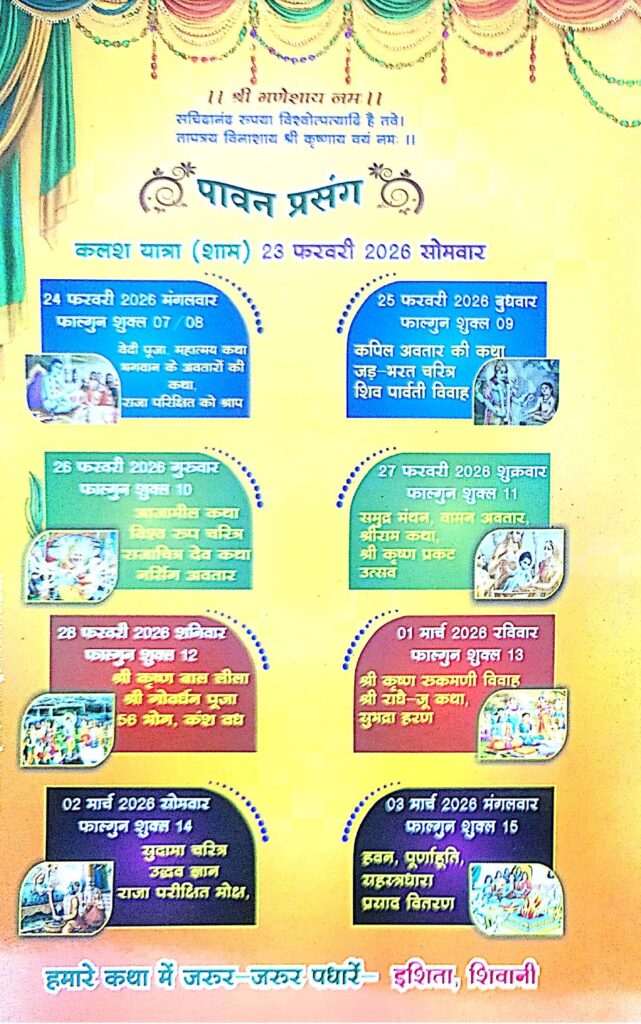 ।। श्री गणेशाय नमः ।।
सचिदानंद रुपया विश्वोत्पत्यादि है तवे।
तापत्रय विनाशाय श्री कृष्णाय वयं नमः ।।
पावन प्रसंग
कलश यात्रा (शाम) 23 फरवरी 2026 सोमवार
24 फरवरी 2026 मंगलवार
फाल्गुन शुक्ल 07/08
वेदी पूजा, महात्मय कथा
भगवान के अवतारों की
कथा,
राजा परिक्षित को श्राप
25 फरवरी 2026 बुधवार
फाल्गुन शुक्ल 09
कपिल अवतार की कथा
जड़-भरत चरित्र
शिव पार्वती विवाह
26 फरवरी 2026 गुरुवार
फाल्गुन शुक्ल 10
आजामील कथा
विश्व रुप चरित्र
राजाचित्र देव कथा
नर्सिंग अवतार
27 फरवरी 2026 शुक्रवार
फाल्गुन शुक्ल 11
समुद्र मंथन, वामन अवतार,
श्रीराम कथा,
श्री कृष्ण प्रकट
उत्सव
28 फरवरी 2026 शनिवार
फाल्गुन शुक्ल 12
श्री कृष्ण बाल लीला
श्री गोवर्धन पूजा
56 भोग, कंश वध
01 मार्च 2026 रविवार
फाल्गुन शुक्ल 13
श्री कृष्ण रुकमणी विवाह
श्री राधे-जू कथा,
सुभद्रा हरण
02 मार्च 2026 सोमवार
फाल्गुन शुक्ल 14
सुदामा चरित्र
उद्धव ज्ञान
राजा परीक्षित मोक्ष,
03 मार्च 2026 मंगलवार
फाल्गुन शुक्ल 15
हवन, पूर्णाहूति,
सहस्त्रधारा
प्रसाद वितरण
हमारे कथा में जरुर-जरुर पधारें- इशिता, शिवानी